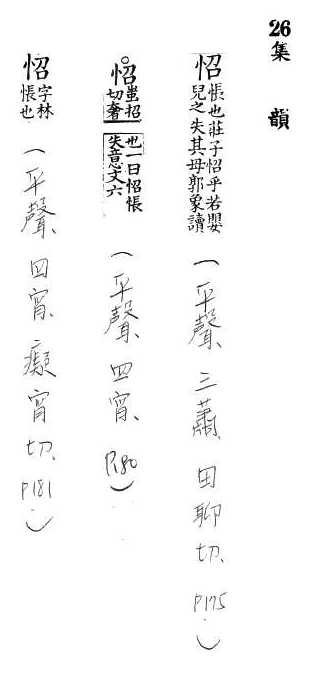 26集韻
怊悵也莊子怊乎若嬰兒之失其母郭象讀（平聲、三蕭、田聊切、P175）
怊蚩招切奢也一曰怊悵失意文六（平聲、四宵、P180）
怊字林悵也（平聲、四宵、癡宵切、P181）